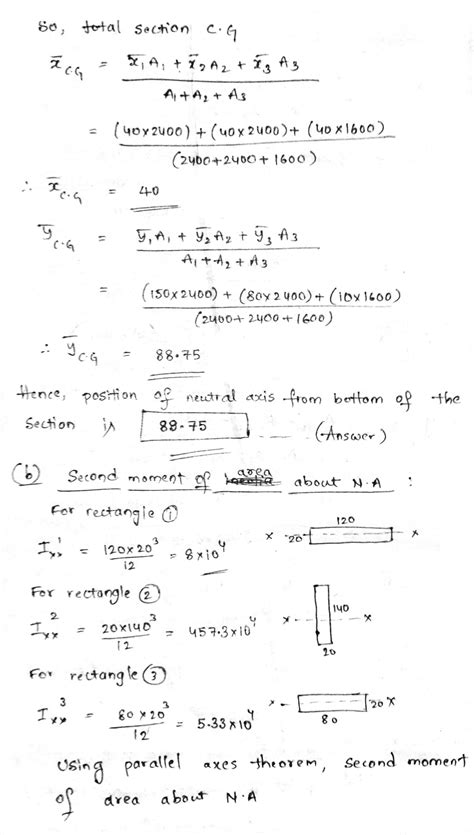 So, total section C.G
x̄C.G = x̄1A1 + x̄2A2 + x̄3A3 / A1+A2+A3
= (40×2400)+(40×2400)+(40×1600) / (2400+2400+1600)
∴ x̄C.G = 40
ȳC.G = ȳ1A1 + ȳ2A2 + ȳ3A3 / A1+A2+A3
= (150×2400)+(80×2400)+(10×1600) / (2400+2400+1600)
∴ ȳC.G = 88.75
Hence, position of neutral axis from bottom of the
section is 88.75 ... (Answer)
(b) Second moment of area about N.A :
For rectangle ①
Ixx1 = 120×20³ / 12 = 8×10⁴
x 20 120 x
For rectangle ②
Ixx2 = 20×140³ / 12 = 457.3×10⁴
x 140 x
20
For rectangle ③
Ixx3 = 80×20³ / 12 = 5.33×10⁴
x 20 x
80
Using parallel axes theorem, second moment
of area about N.A